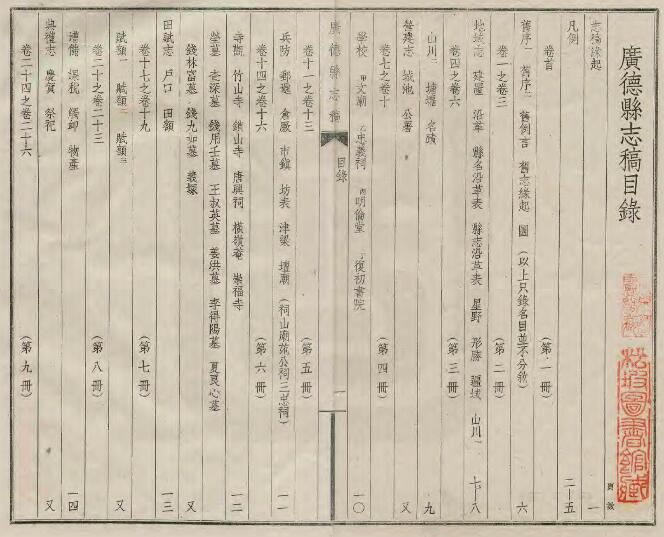 廣德縣志稿目錄
頁數
志稿緣起 一
凡例 二—五
卷首 (第一冊)
舊序一 舊序二 舊例言 舊志緣起 圖 (以上只錄名目並不分敘) 六
卷一之卷三 (第二冊)
地域志 建置 沿革 縣名沿革表 縣志沿革表 星野 形勝 疆域 山川一 七—八
卷四之卷六 (第三冊)
山川二 塘壩 名蹟 九
營建志 城池 公署 又
卷七之卷十 (第四冊)
學校 甲文廟 乙忠義祠 丙明倫堂 丁復初書院 一〇
廣德縣志稿 目錄 一
卷十一之卷十三 (第五冊)
兵防 郵遞 倉廒 市鎮 坊表 津梁 壇廟 (祠山廟范公祠三忠祠) 一一
卷十四之卷十六 (第六冊)
寺觀 竹山寺 鎖山寺 唐興祠 橫嶺庵 崇福寺 一二
塋墓 查深墓 錢用壬墓 王叔英墓 姜洪墓 李得陽墓 夏良心墓
錢林富墓 錢九如墓 義塚 又
田賦志 戶口 田額 一三
卷十七之卷十九 (第七冊)
賦額一 賦額二 賦額三 又
卷二十之卷二十三 (第八冊)
積儲 課稅 蠲卹 物產 一四
典禮志 慶賀 祭祀 又
卷二十四之卷二十六 (第九冊)
松坡圖書館藏